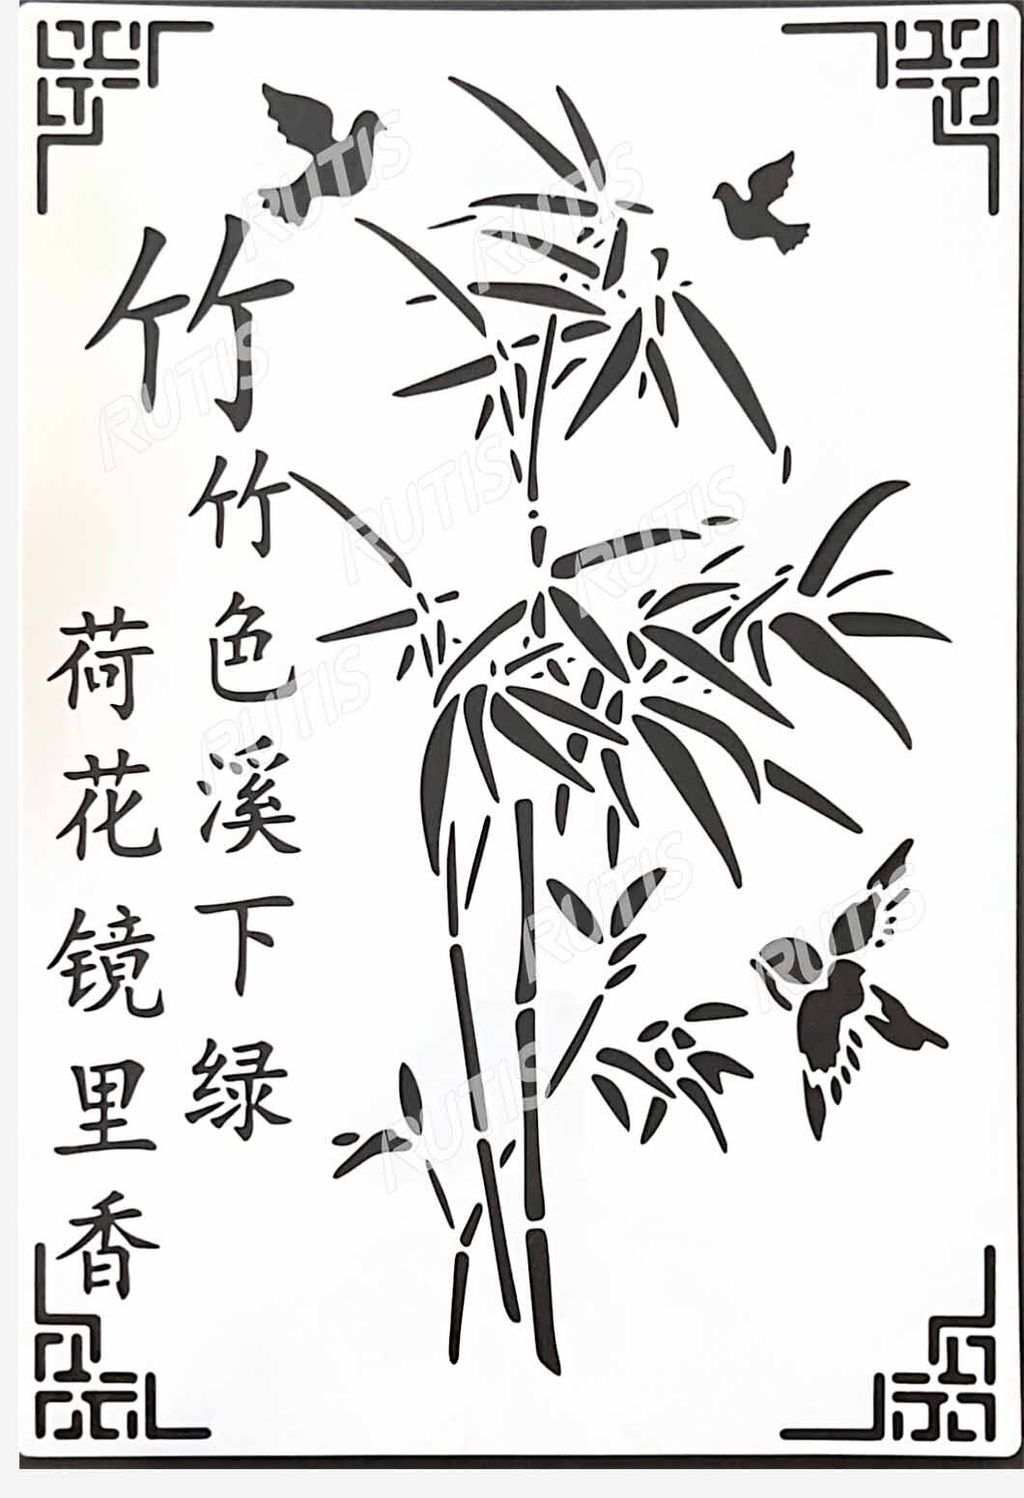 竹
竹色溪下绿
荷花镜里香
RUTIS
RUTIS
RUTIS
RUTIS
RUTIS
RUTIS
RUTIS
RUTIS
RUTIS